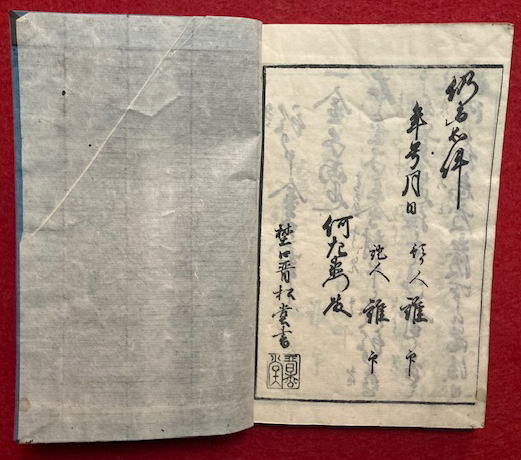 仍而如件
年号月日 預り人 誰 印
證人 誰 印
何左衛門殿
埜口晋松堂書